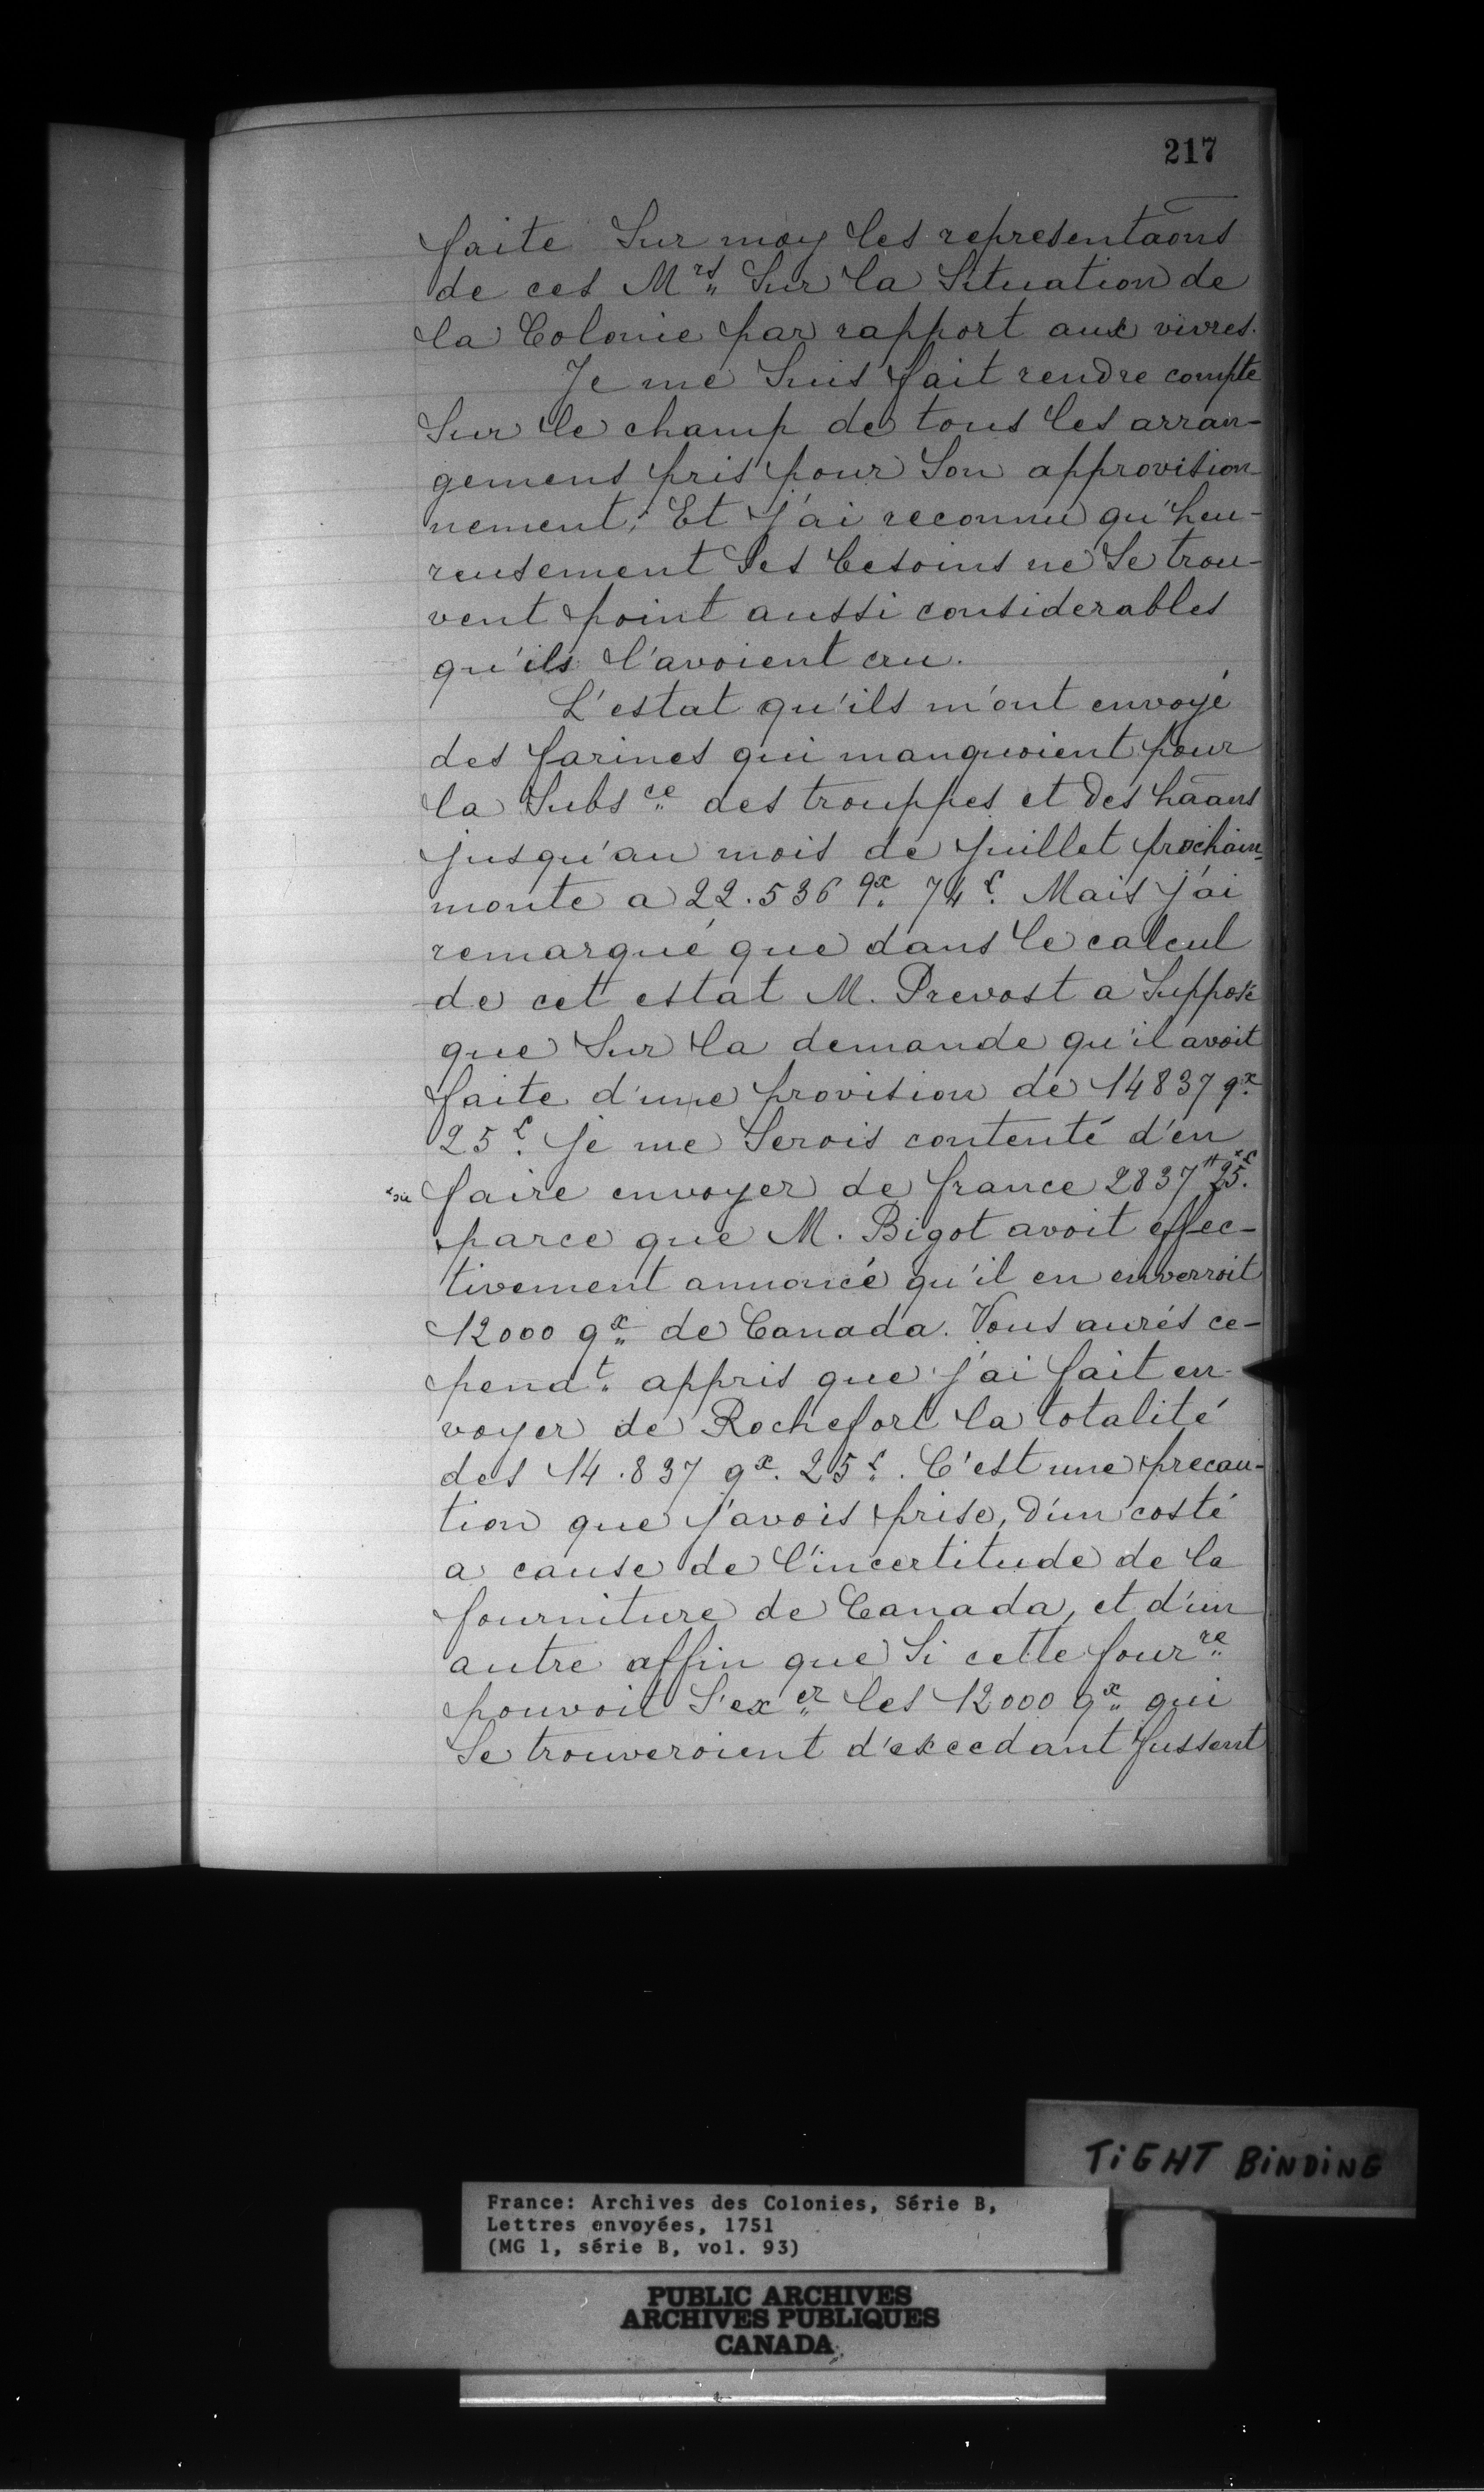 217
faite Sur moy les representaõns
de ces Mrs. Sur la Situation de
la Colonie par rapport aux vivres.
Je me Suis fait rendre compte
Sur le champ de tous les arran-
gemens pris pour Son approvision
nement; Et j'ai reconnu qu'heu-
reusement Ses besoins ne Se trou-
vent point aussi considerables
qu'ils l'avoient cru.
L'estat qu'ils m'ont envoyé
des farines qui manquoient pour
la Subsce des trouppes et des hãans
jusqu'au mois de juillet prochain
monte a 22.536 qx 74 £. Mais j'ai
remarqué que dans le calcul
de cet estat M. Prevost a Supposé
que Sur la demande qu'il avoit
faite d'une provision de 14837 qx
25 £. je me Serois contenté d'en
faire envoyer de france 2837 # 25 £.
parce que M. Bigot avoit effec-
tivement annoncé qu'il en enverroit
12000 qx de Canada. Vous aurés ce-
pendt. appris que j'ai fait en-
voyer de Rochefort la totalité
des 14.837 qx. 25 £. C'est une precau-
tion que j'avois prise, d'un costé
a cause de l'incertitude de la
fourniture de Canada, et d'un
autre affin que Si cette fourre
pouvoit S'exer les 12000 qx qui
Se trouveroient d'excedant fussent
TIGHT BINDING
France: Archives des Colonies, Série B,
Lettres envoyées, 1751
(MG 1, série B, vol. 93)
PUBLIC ARCHIVES
ARCHIVES PUBLIQUES
CANADA